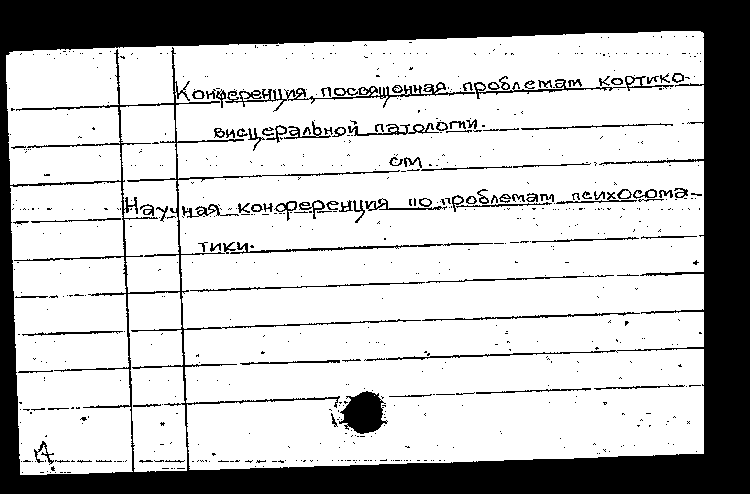 Конференция, посвященная проблемам кортико-
висцеральной патологии.
см.
Научная конференция по проблемам психосома-
тики.